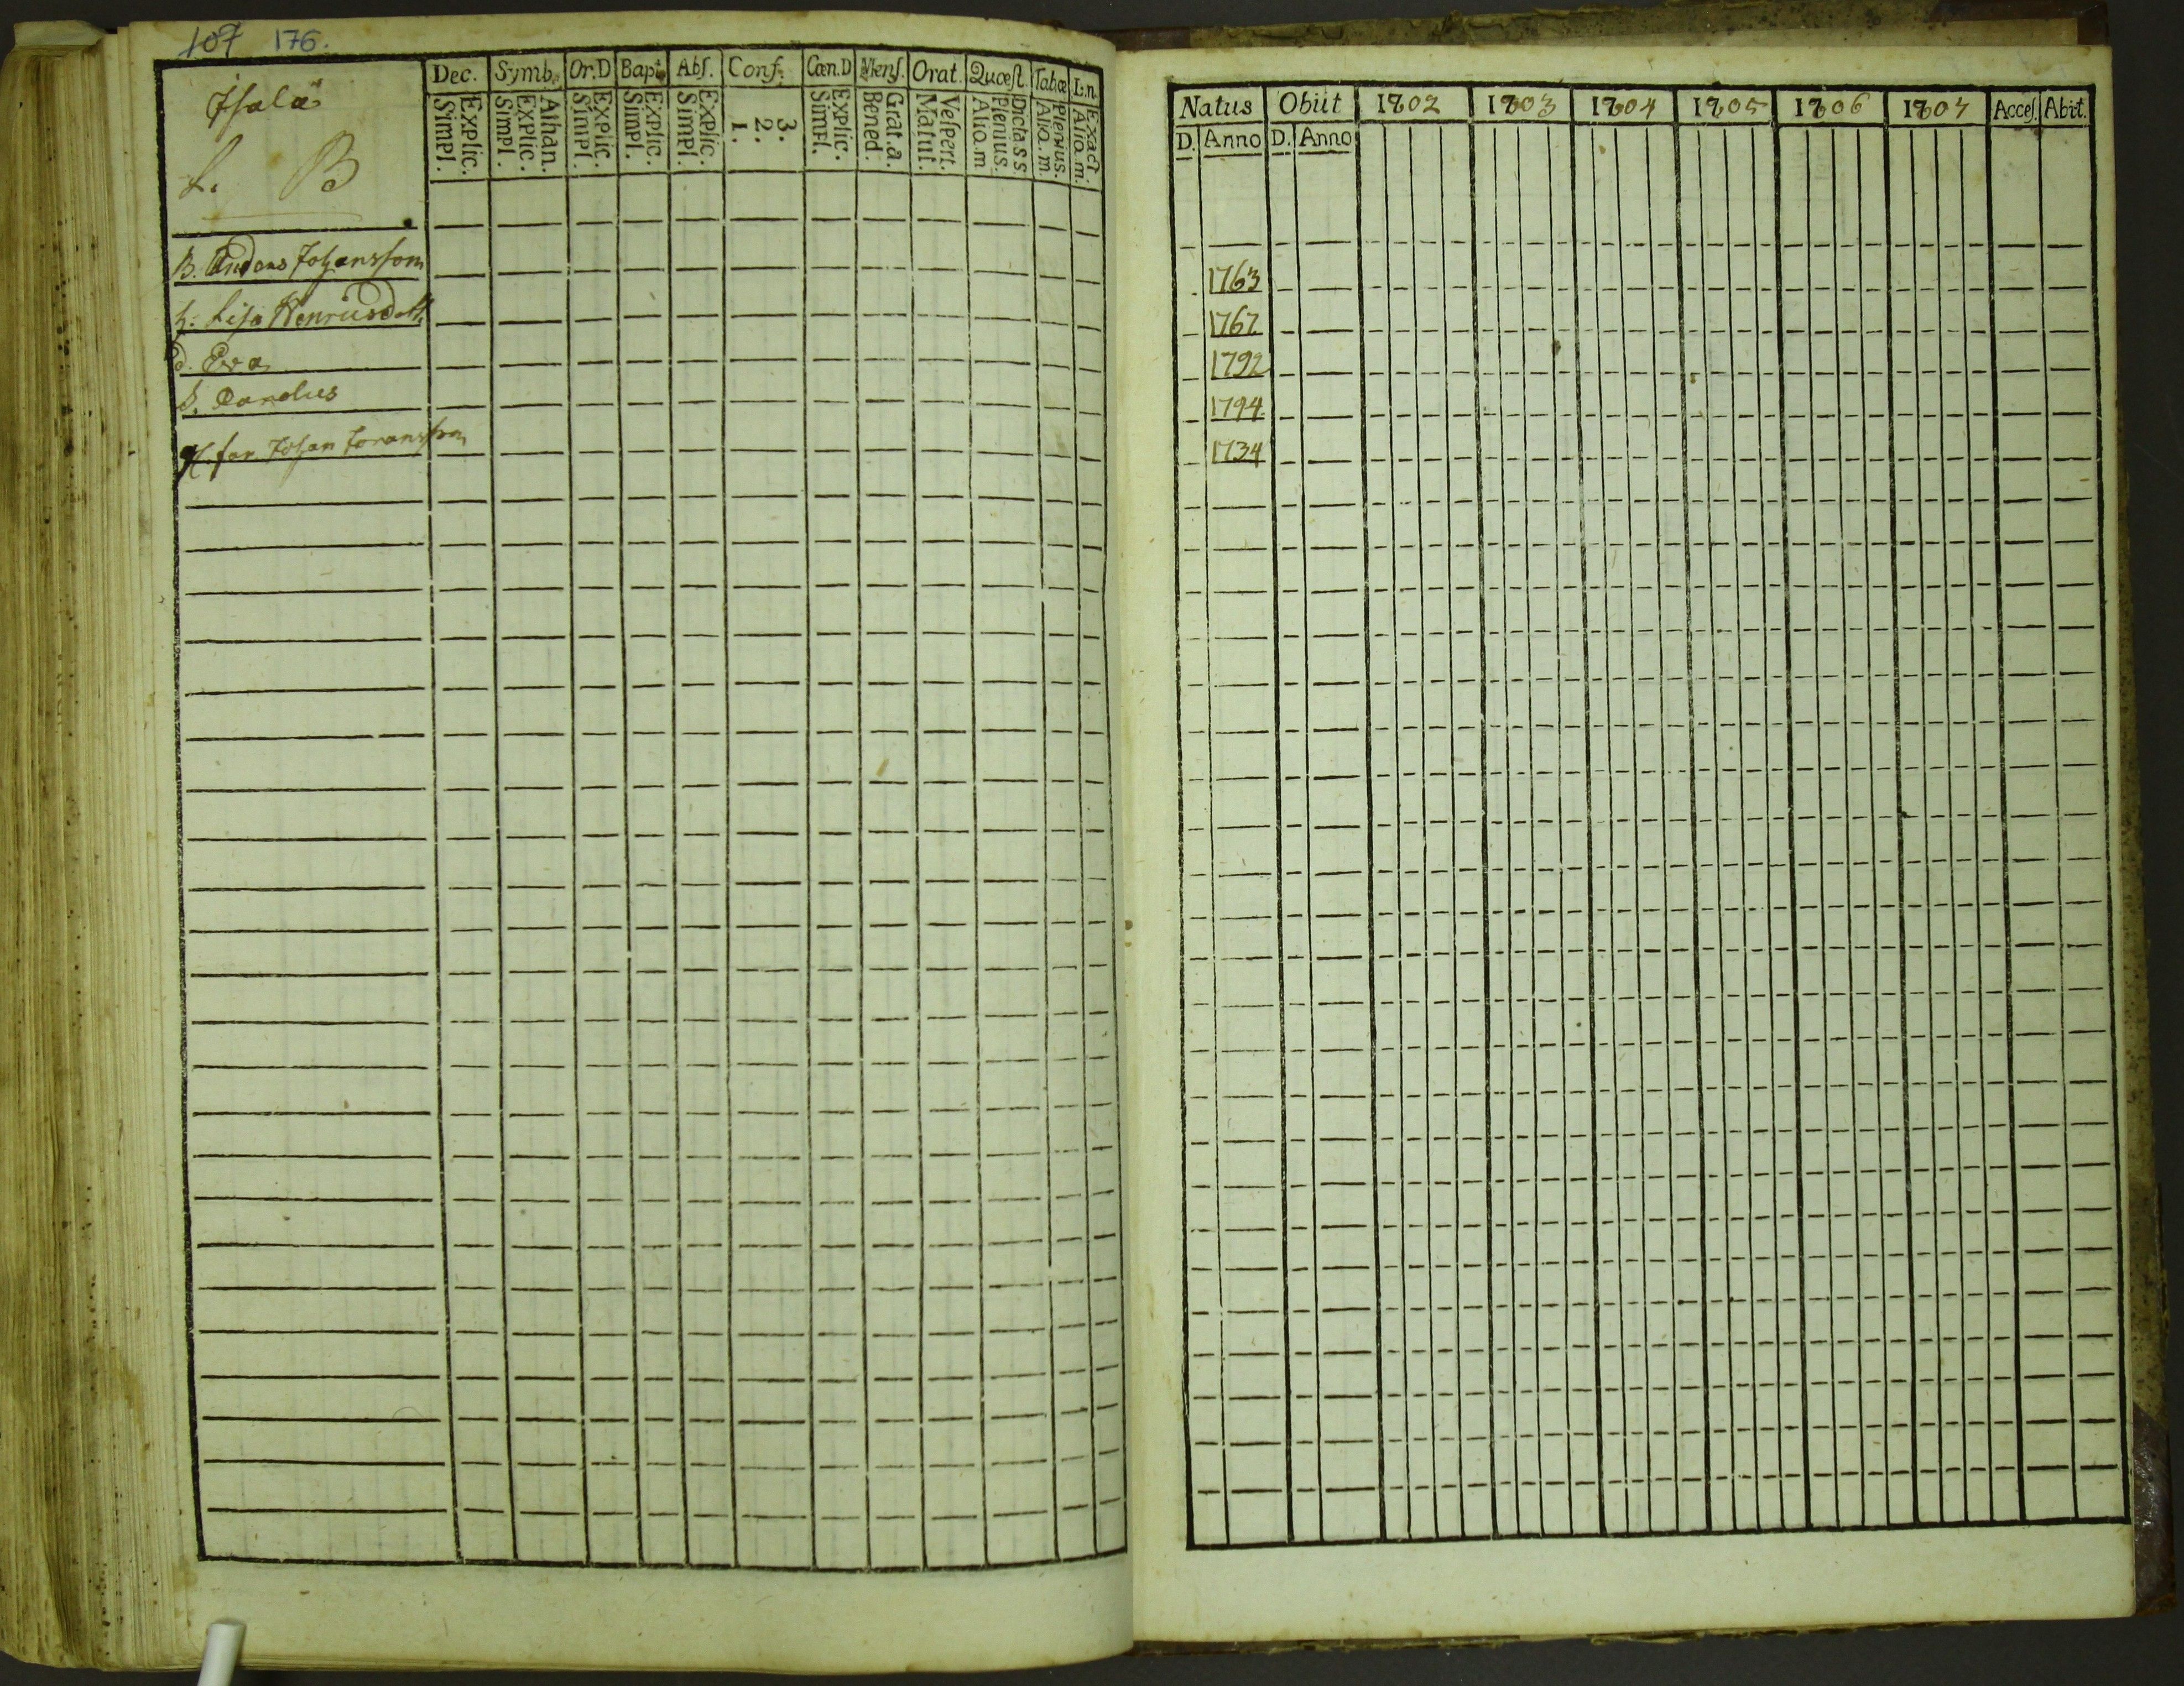 107 176.
Isala
L. B
Dec. Symb. Or.D Bapt. Abſ. Conf. Cœn.D Menſ. Orat. Quœſt. Tabœ L:n.
Explic. Simpl. Athan. Explic. Simpl. Explic. Simpl. Explic. Simpl. Explic. Simpl. 3. 2. 1. Explic. Simpl. Grat.a. Bened. Veſpert. Matut. Dicta.ss Plenius. Aliq.m Plenius. Aliq.m. Exact. Aliq.m.
B. Anders Johansson
h. Lisa Henricsdott.
d. Eva
S. Carolus
H. far Johan Joransson
Natus Obiit 1802 1803 1804 1805 1806 1807 Acceſ. Abiit.
D. Anno D. Anno
1763
1767
1792
1794
1734